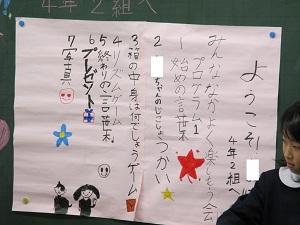 4年2組へ
ようこそ!
4年2組へ
みんななかよく楽しもう会
プログラム1
1 始めの言葉
2 ちゃんのじこしょうかい
3 箱の中身は何でしょうゲーム
4 リズムゲーム
5 終わりの言葉
6 プレゼント
7 写真